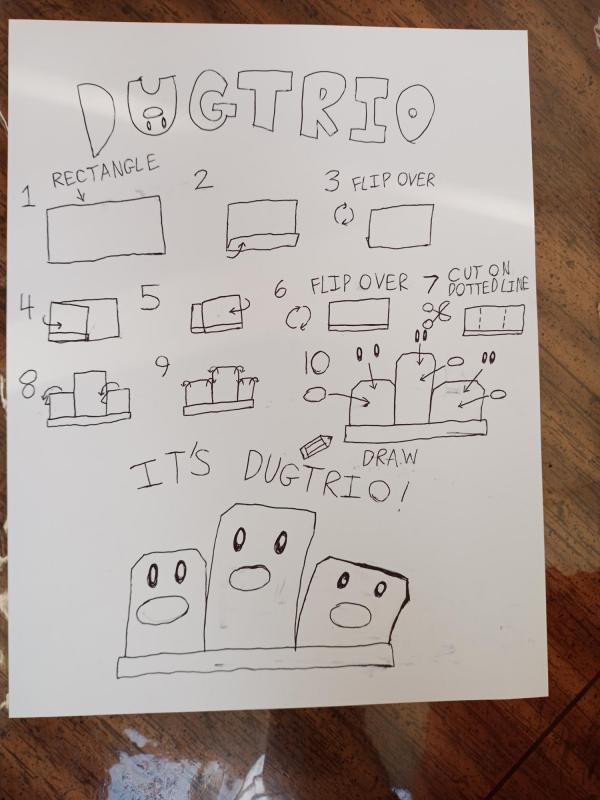 DUGTRIO
1 RECTANGLE
2
3 FLIP OVER
4
5
6 FLIP OVER
7 CUT ON
DOTTED LINE
8
9
10
DRAW
IT'S DUGTRIO!